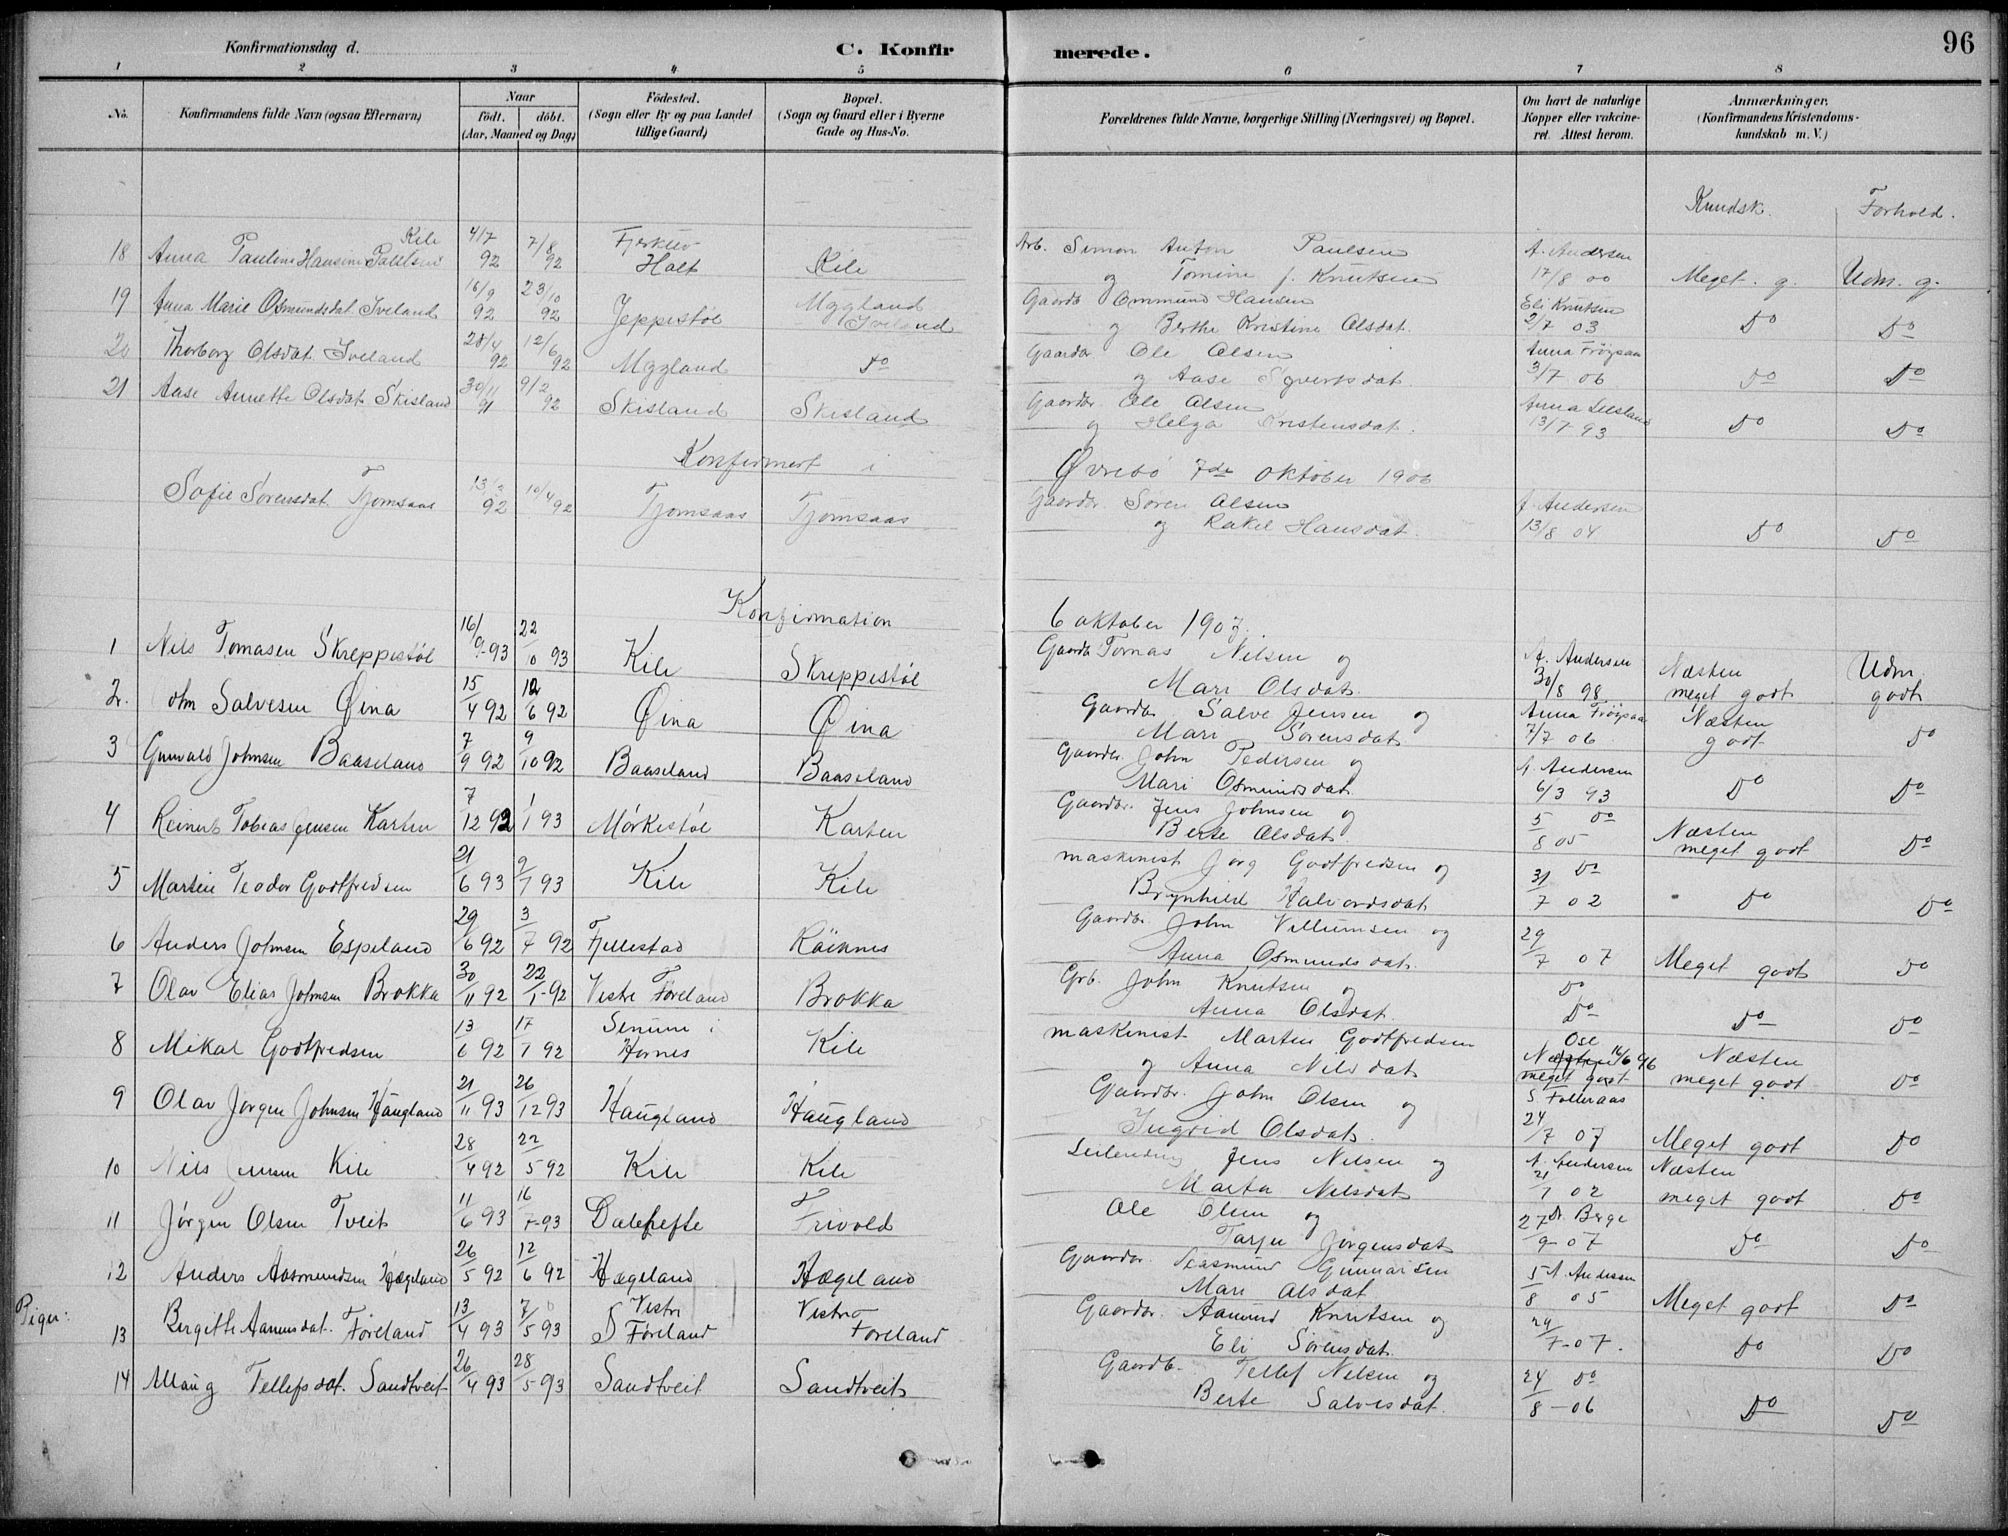 Konfirmationsdag d. C. Konfirmerede. 96
1 2 3 4 5 6 7 8
No. Konfirmandens fulde Navn (ogsaa Efternavn) Naar født. døbt. (Aar, Maaned og Dag) Fødested. (Sogn eller By og paa Landet tillige Gaard) Bopæl. (Sogn og Gaard eller i Byerne Gade og Hus-No. Forældrenes fulde Navne, borgerlige Stilling (Næringsvei) og Bopæl. Om havt de naturlige Kopper eller vakcineret. Attest herom. Anmærkninger. (Konfirmandens Kristendomskundskab m. V.)
Kundsk. Forhold.
18 Anna Pauline Hansine Paulsen Kile 4/7 92 7/8 92 Holt Kile Arb. Simon Anton Paulsen
og Tomine f. Knutsen A. Andersen 17/8 00 Meget g. Udm. g.
19 Anna Marie Osmundsdat. Iveland 16/9 92 23/10 92 Jeppestøl Mygland Iveland Gaardb. Ommund Hansen
og Berthe Kristine Olsdat. Eli Knutsen 2/7 03 Do Do
20 Thorborg Olsdat. Iveland 28/4 92 12/6 92 Mygland Do Gaardbr. Ole Olsen
og Aase Syvertsdat. Anna Frøysaa 3/7 06 Do Do
21 Aase Annette Olsdat. Skisland 30/11 91 9/2 92 Skisland Skisland Gaardbr. Ole Olsen
og Helga Kristensdat. Anna 13/7 93 Do Do
Konfirmert i Øvrebø 7de Oktober 1906
Sofie Sørensdat. Tjomsaas 92 10/4 92 Tjomsaas Tjomsaas Gaardbr. Søren Olsen
og Rakel Hansdat. A. Andersen 13/8 04 Do Do
Konfirmation 6 oktober 1907.
1 Nils Tomasen Skreppestøl 16/9-93 22/10 93 Kile Skreppestøl Gaardb Tomas Nilsen og
Mari Olsdat. A. Andersen 30/8 98 Næsten meget godt Udm. godt
2. Om Salvesen Øina 15/4 92 12/6 92 Øina Øina Gaardbr. Salve Jensen og
Mari Sørensdat. Anna Frøysaa 7/7 06 Næsten godt Do
3 Gunvald Johnsen Baaseland 7/9 92 9/10 92 Baaseland Baaseland Gaardbr. John Pedersen og
Mari Osmundsdat. A. Andersen 6/3 93 Do Do
4 Reinert Tobias Jensen Karten 7/12 92 1/1 93 Mørkestøl Karten Gaardbr. Jens Johnsen og
Berte Olsdat. 5/8 05 Do Næsten meget godt Do
5 Martin Teodor Godtfredsen 21/6 93 9/7 93 Kile Kile maskinist Jørg Godtfredsen og
Brynhild Halvordsdat. 31/7 02 Do Do Do
6 Anders Johnsen Espeland 29/6 92 3/7 92 Fjellestad Røiknes Gaardbr. John Villumsen og
Anna Osmundsdat. 29/7 07 Meget godt Do
7 Olav Elias Johnsen Brokka 30/11 92 22/1-92 Vestre Føreland Brokka Grb. John Knutsen og
Anna Olsdat. Do Do Do Do
8 Mikal Godtfredsen 13/6 92 17/7 92 Senum i Hornes Kile maskinist Martin Godtfredsen
og Anna Nilsdat. Ose 16/6 96 Næsten meget godt Næsten meget godt Do
9 Olav Jørgen Johnsen Haugland 21/11 93 26/12 93 Haugland Haugland Gaardbr. John Olsen og
Ingrid Olsdat. S. Folleraas 24/7 07 Meget godt Do
10 Nils Jensen Kile 28/4 92 22/5 92 Kile Kile Leilending Jens Nilsen og
Marta Nilsdat. A. Andersen 21/7 02 Næsten meget godt Do
11 Jørgen Olsen Tveit 11/6 93 16/7-93 Dalehefte Frivold Ole Olsen og
Tarje Jørgensdat. Berge 27/9-07 Do Do
12 Anders Aasmundsen Hægeland 26/5 92 12/6 92 Hægeland Hægeland Gaardbr. Aasmund Gunnarsen
Mari Olsdat. A. Andersen 5/8 05 Meget godt Do
Piger:
13 Bergitte Aanensdat. Føreland 13/4 93 7/5 93 Vestre Føreland Vestre Føreland Gaardbr. Aanund Knutsen og
Eli Sørensdat. 24/7-07. Do Do
14 Maug Tellefsdat. Sandtveit 26/4 93 28/5 93 Sandtveit Sandtveit Gaardb. Tellef Nilsen og
Berte Salvesdat. 24/8-06 Do Do Do